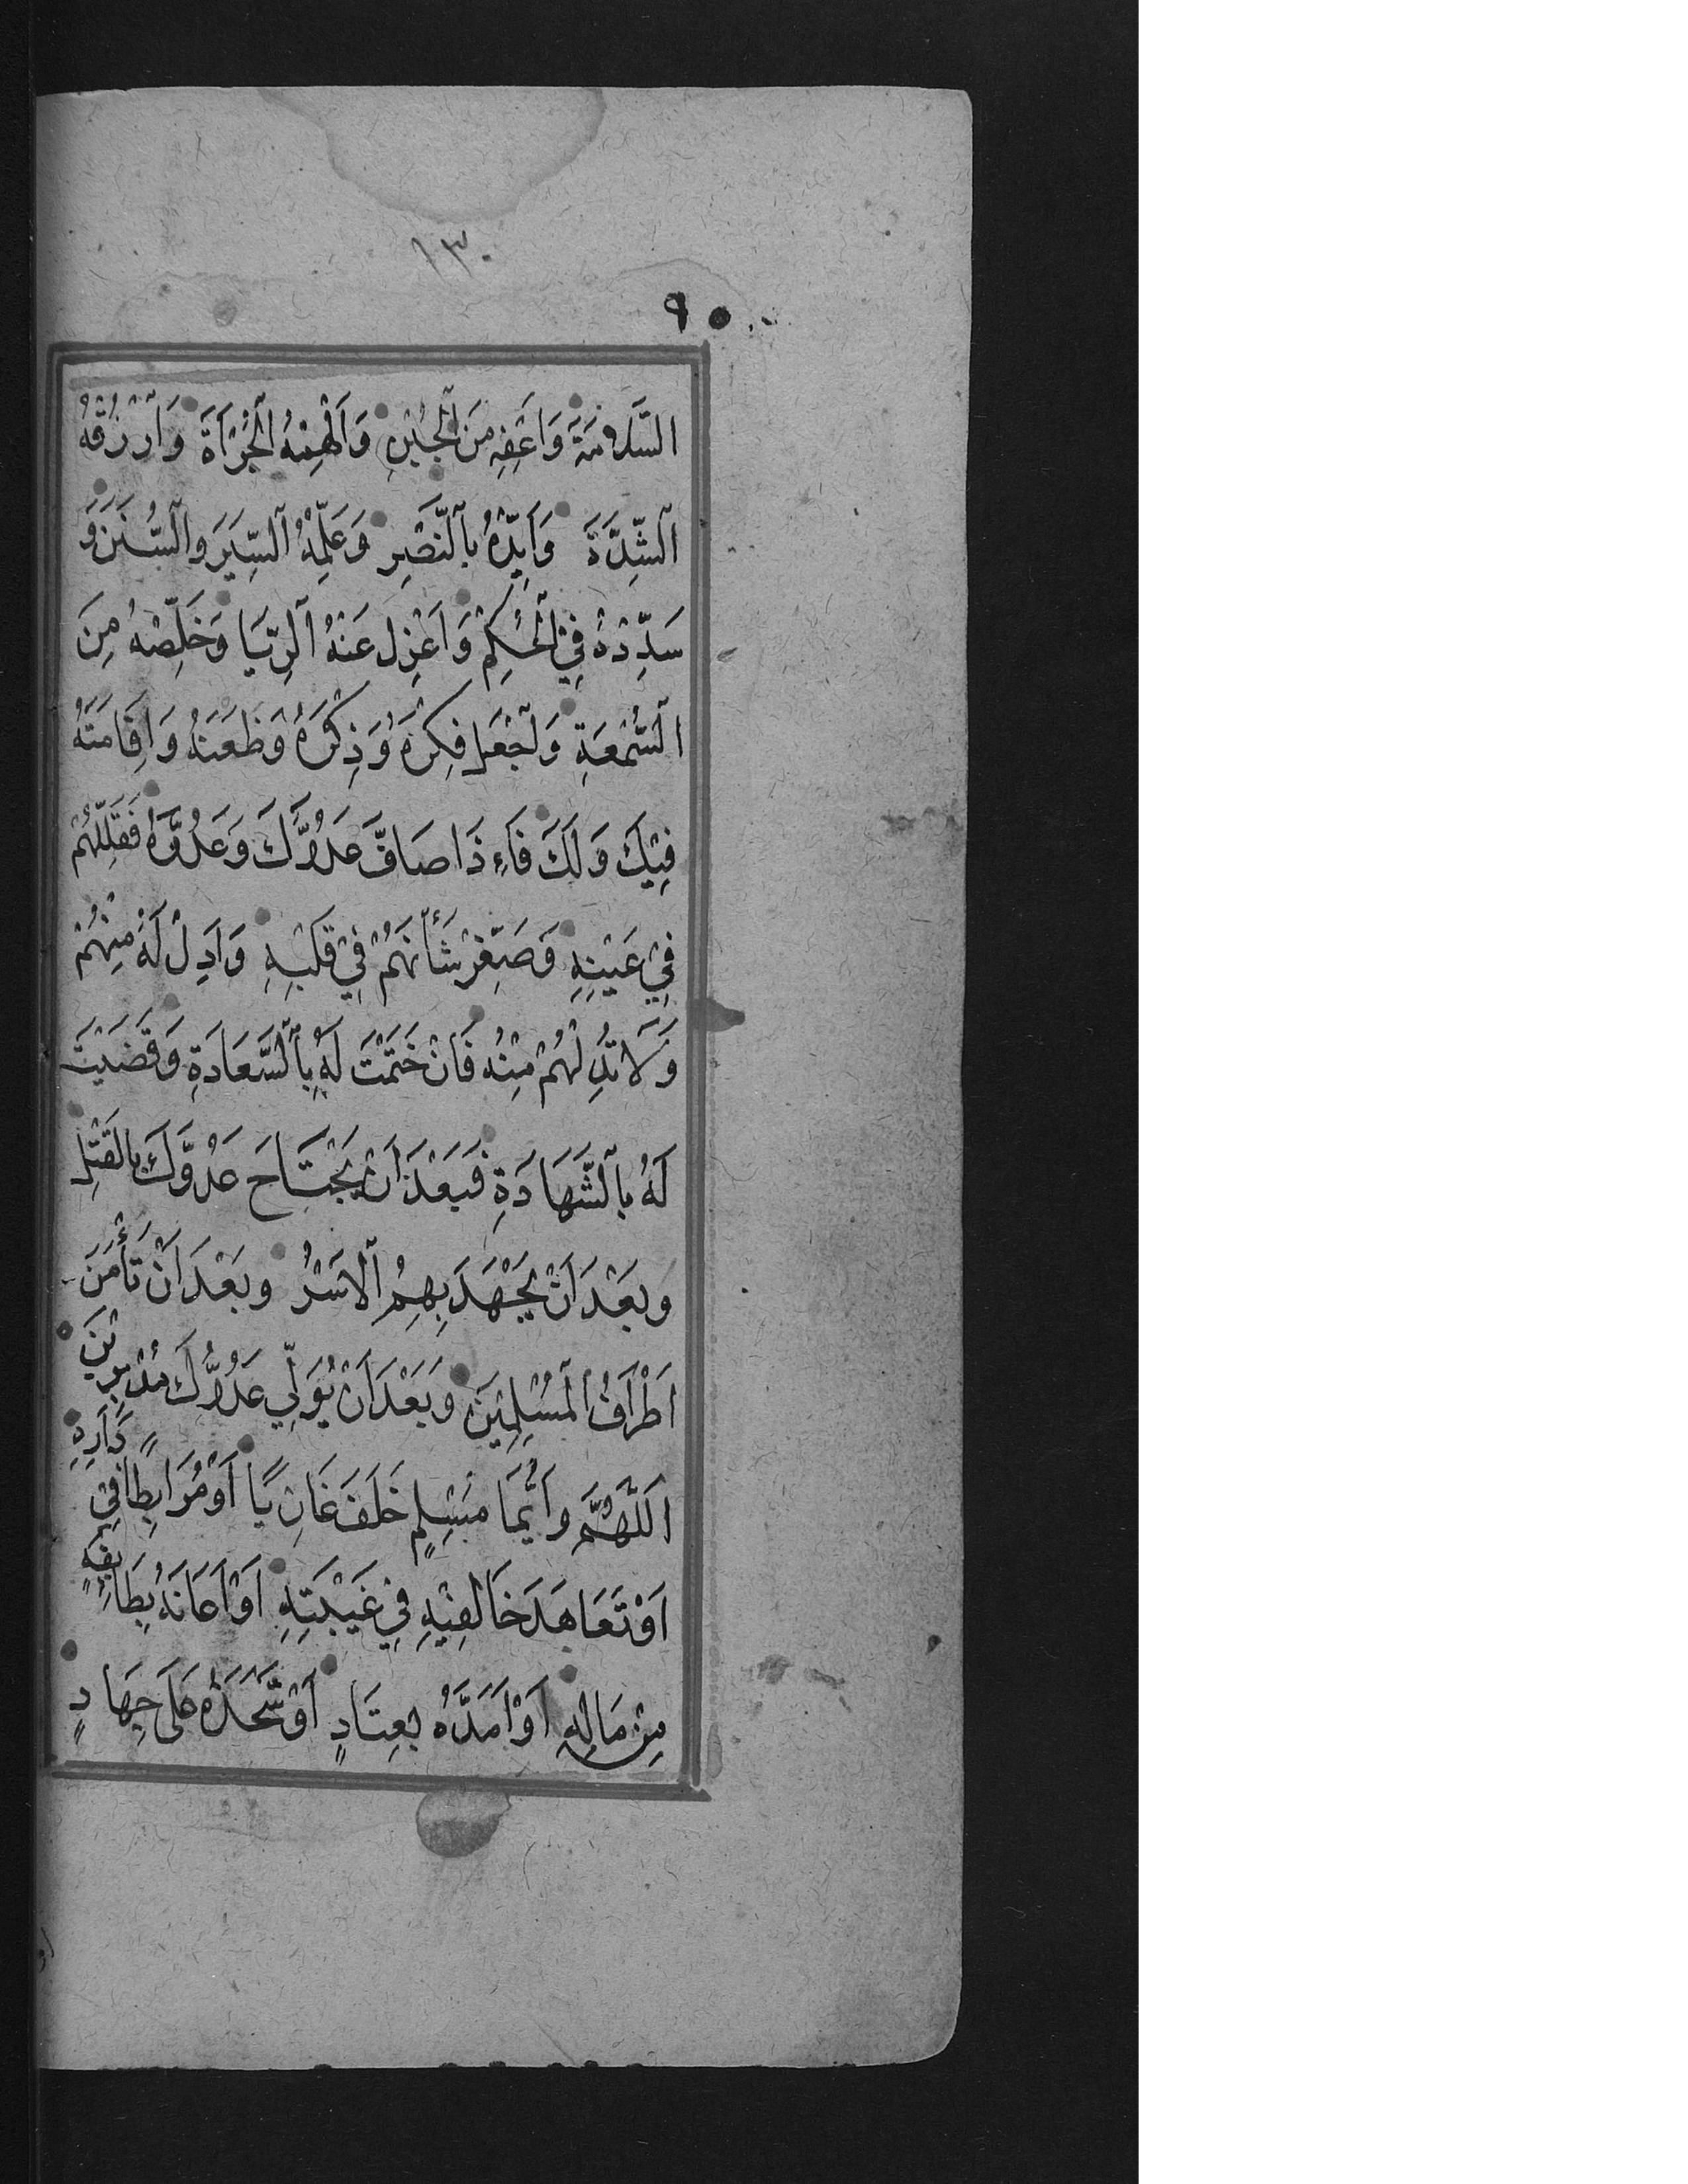 ١٣٠
٩٠
السَّلَامَةَ وَاعْفِهِ مِنَ الْجُبْنِ وَاَلْهِمْهُ الْجُرْاَةَ وَارْزُقْهُ
الشِّدَّةَ وَاَيِّدْهُ بِالنَّصْرِ وَعَلِّمْهُ السِّيَرَ وَالسُّنَنَ وَ
سَدِّدْهُ فِي الْحُكْمِ وَاعْزِلْ عَنْهُ الرِّيَا وَخَلِّصْهُ مِنَ
السُّمْعَةِ وَاجْعَلْ فِكْرَهُ وَذِكْرَهُ وَظَعْنَهُ وَاِقَامَتَهُ
فِيْكَ وَلَكَ فَاِذَا صَافَّ عَدُوَّكَ وَعَدُوَّهُ فَقَلِّلْهُمْ
فِيْ عَيْنِهِ وَصَغِّرْ شَأْنَهُمْ فِيْ قَلْبِهِ وَاَدِلْ لَهُ مِنْهُمْ
وَلَا تُدِلْهُمْ مِنْهُ فَاِنْ خَتَمْتَ لَهُ بِالسَّعَادَةِ وَقَضَيْتَ
لَهُ بِالشَّهَادَةِ فَبَعْدَ اَنْ يَجْتَاحَ عَدُوَّكَ بِالْقَتْلِ
وَبَعْدَ اَنْ يَجْهَدَ بِهِمُ الْاَسْرُ وَبَعْدَ اَنْ تَأْمَنَ
اَطْرَافُ الْمُسْلِمِيْنَ وَبَعْدَ اَنْ يُوَلِّيَ عَدُوُّكَ مُدْبِرِيْنَ
اَللّٰهُمَّ وَاَيُّمَا مُسْلِمٍ خَلَفَ غَازِيًا اَوْ مُرَابِطًا فِيْ دَارِهِ
اَوْ تَعَاهَدَ خَالِفِيْهِ فِيْ غَيْبَتِهِ اَوْ اَعَانَهُ بِطَائِفَةٍ
مِنْ مَالِهِ اَوْ اَمَدَّهُ بِعِتَادٍ اَوْ شَحَذَهُ عَلٰى جِهَادٍ